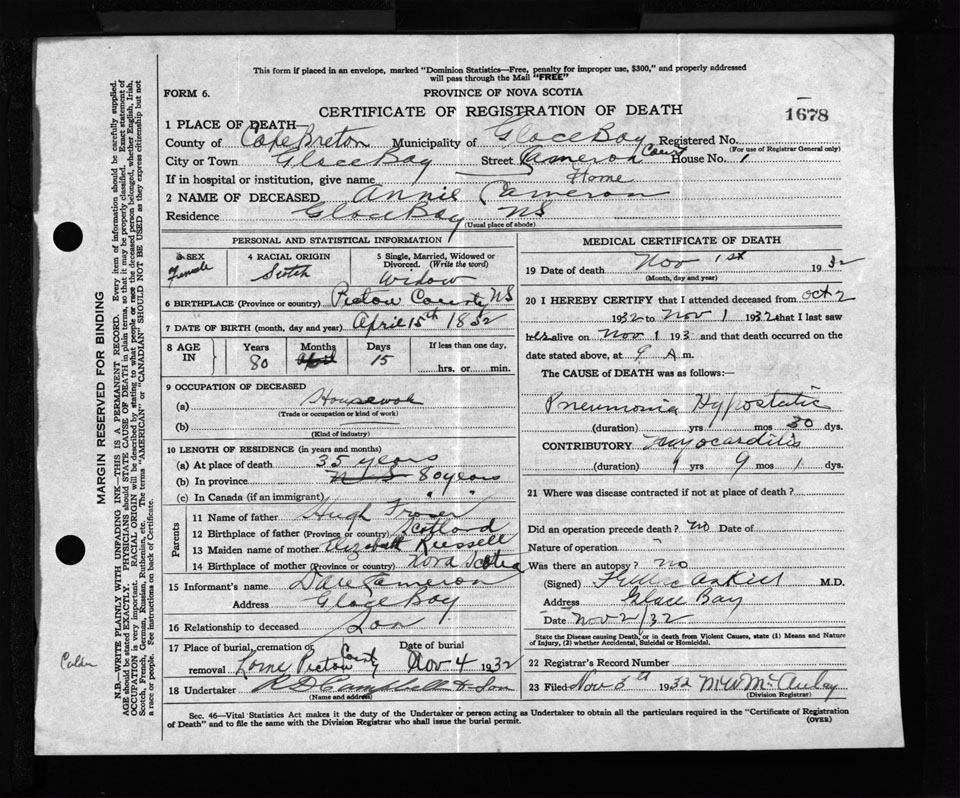 This form if placed in an envelope, marked "Dominion Statistics—Free, penalty for improper use, $300," and properly addressed
will pass through the Mail "FREE"
FORM 6.
PROVINCE OF NOVA SCOTIA
CERTIFICATE OF REGISTRATION OF DEATH
1678
1 PLACE OF DEATH
County of Cape Breton Municipality of Glace Bay Registered No.
(For use of Registrar General only)
City or Town Glace Bay Street Cameron Court House No. 1
If in hospital or institution, give name Home
2 NAME OF DECEASED Annie Cameron
Residence Glace Bay NS
(Usual place of abode)
PERSONAL AND STATISTICAL INFORMATION
3 SEX 4 RACIAL ORIGIN 5 Single, Married, Widowed or Divorced. (Write the word)
Female Scotch Widow
6 BIRTHPLACE (Province or country) Pictou County NS
7 DATE OF BIRTH (month, day and year) April 15th 1852
8 AGE IN Years Months Days If less than one day,
80 April 15 hrs. or min.
9 OCCUPATION OF DECEASED
(a) Housework
(Trade or occupation or kind of work)
(b)
(Kind of industry)
10 LENGTH OF RESIDENCE (in years and months)
(a) At place of death 35 years
(b) In province N S 80 years
(c) In Canada (if an immigrant) " "
Parents
11 Name of father Hugh Fraser
12 Birthplace of father (Province or country) Scotland
13 Maiden name of mother Elizabeth Russell
14 Birthplace of mother (Province or country) Nova Scotia
15 Informant's name Dave Cameron
Address Glace Bay
16 Relationship to deceased Son
17 Place of burial, cremation or removal Date of burial
Lorne Pictou County Nov 4 1932
18 Undertaker R D Campbell & Son
(Name and address)
MEDICAL CERTIFICATE OF DEATH
19 Date of death Nov 1st 1932
(Month, day and year)
20 I HEREBY CERTIFY that I attended deceased from Oct 2
1932 to Nov 1 1932 that I last saw
alive on Nov 1 193 and that death occurred on the
date stated above, at 9 A m.
The CAUSE of DEATH was as follows:
Pneumonia Hypostatic
(duration) yrs mos 30 dys.
CONTRIBUTORY Myocarditis
(duration) 1 yrs 9 mos 1 dys.
21 Where was disease contracted if not at place of death?
Did an operation precede death? No Date of
Nature of operation
Was there an autopsy? No
(Signed) M.D.
Address Glace Bay
Date Nov 2/32
State the Disease causing Death, or in death from Violent Causes, state (1) Means and Nature
of Injury, (2) whether Accidental, Suicidal or Homicidal.
22 Registrar's Record Number
23 Filed Nov 5th 1932 M W McAulay
(Division Registrar)
Sec. 46—Vital Statistics Act makes it the duty of the Undertaker or person acting as Undertaker to obtain all the particulars required in the "Certificate of Registration
of Death" and to file the same with the Division Registrar who shall issue the burial permit.
(OVER)
MARGIN RESERVED FOR BINDING
N.B.—WRITE PLAINLY WITH UNFADING INK—THIS IS A PERMANENT RECORD. Every item of information should be carefully supplied.
AGE should be stated EXACTLY. PHYSICIANS should STATE CAUSE OF DEATH in plain terms, so that it may be properly classified. Exact statement of
OCCUPATION is very important. RACIAL ORIGIN will be described by stating to what people or race the deceased person belonged, whether English, Irish,
Scotch, French, German, Russian, Ruthenian, etc. The terms "AMERICAN" or "CANADIAN" SHOULD NOT BE USED as they express citizenship but not
a race or people. See instructions on back of Certificate.